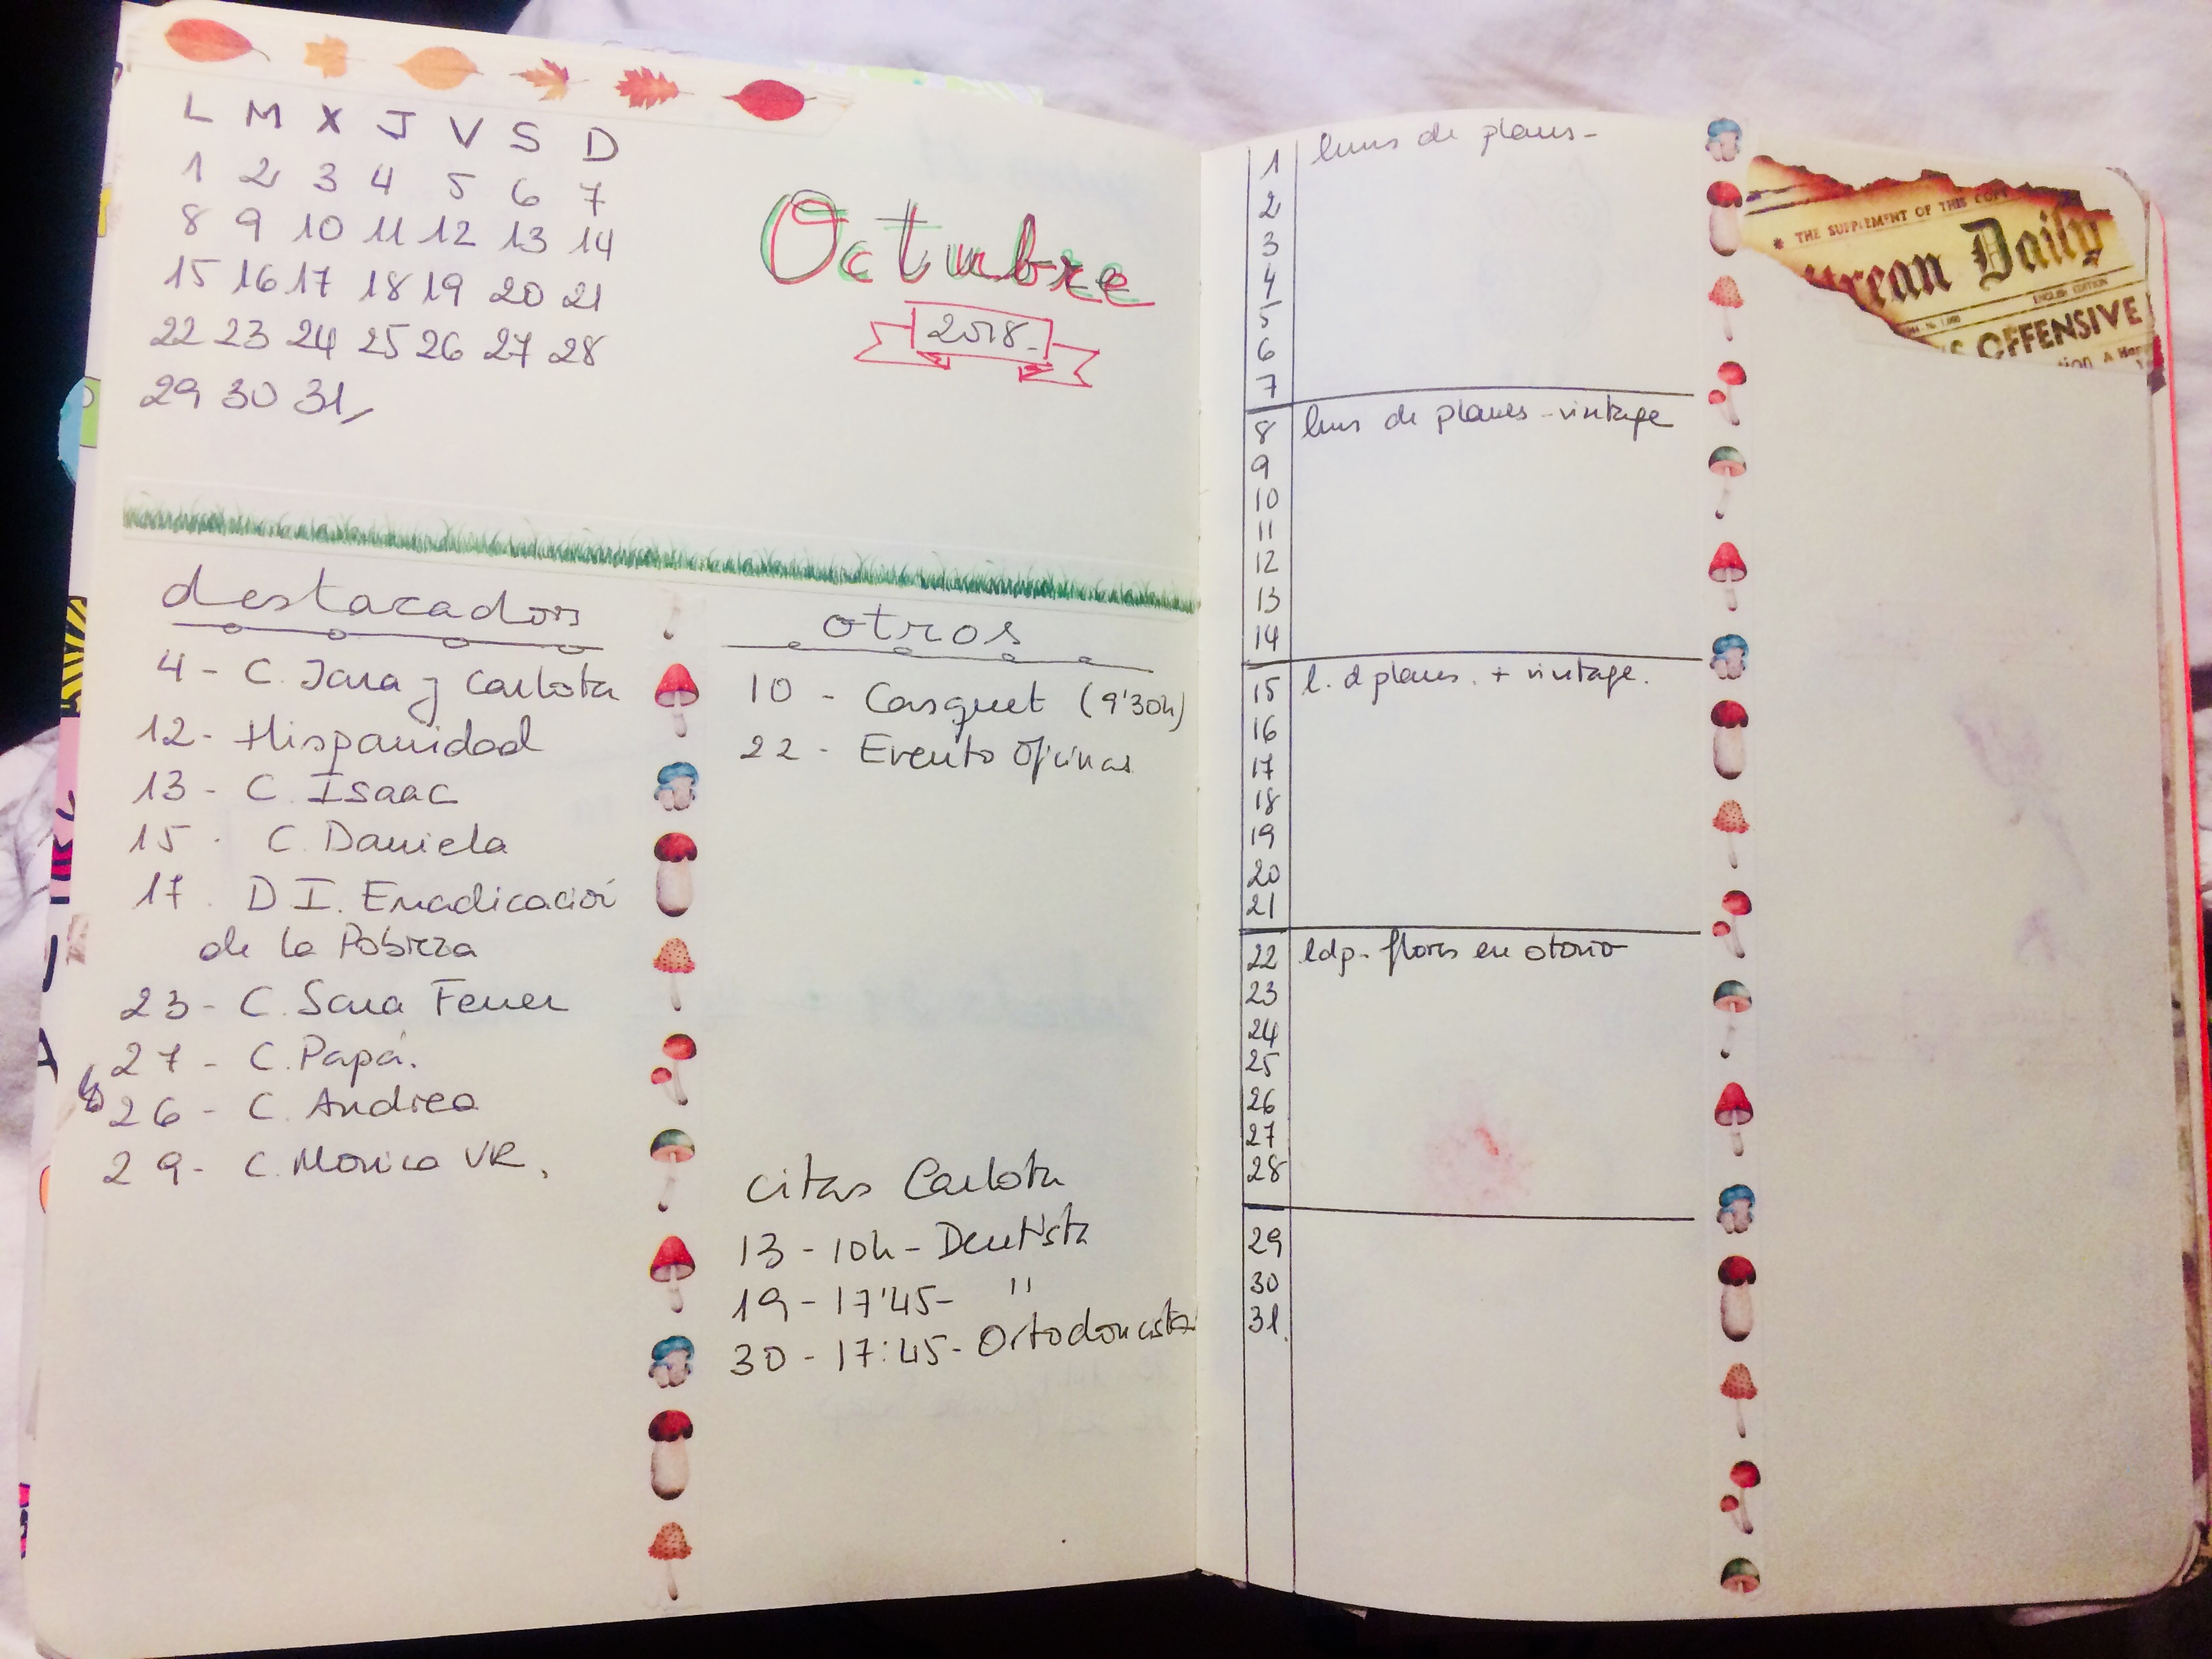 L M X J V S D
1 2 3 4 5 6 7
8 9 10 11 12 13 14
15 16 17 18 19 20 21
22 23 24 25 26 27 28
29 30 31
Octubre
2018-
destacados
4 - C. Jana y Carlota
12 - Hispanidad
13 - C. Isaac
15 . C. Daniela
17 . D I. Erradicación
de la Pobreza
23 - C. Sara Ferrer
27 - C. Papá.
26 - C. Andrea
29 - C. Monica VR.
otros
10 - Casquet (9'30h)
22 - Evento Oficinas
citas Carlota
13 - 10h - Dentista
19 - 17'45 - "
30 - 17:45 - Ortodoncista
1 lunes de planes -
2
3
4
5
6
7
8 lunes de planes - vintage
9
10
11
12
13
14
15 l. d planes. + vintage.
16
17
18
19
20
21
22 ldp - flores en otoño
23
24
25
26
27
28
29
30
31.
* THE SUPPLEMENT OF THIS COPY
Daily
ENGLISH EDITION
OFFENSIVE